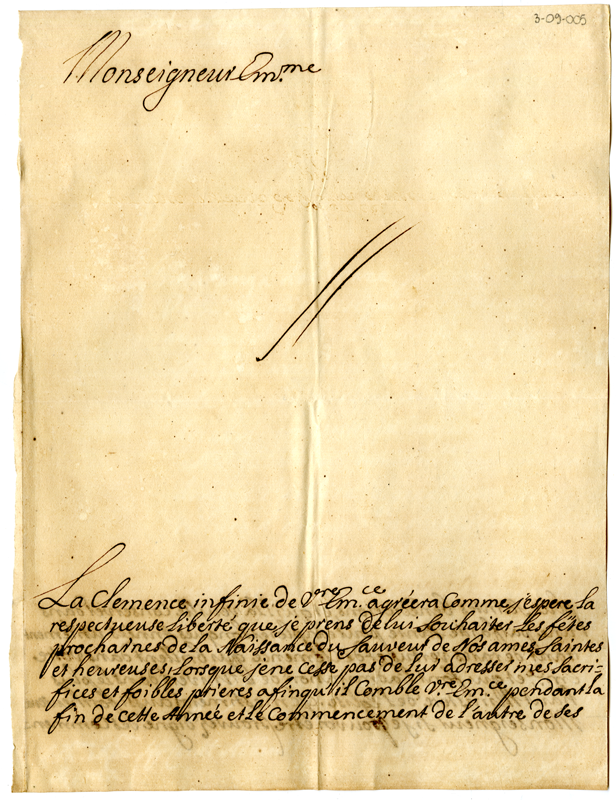 3-09-005
Monseigneur Em.me
La Clemence infinie de Vre Em.ce agréera Comme j'espere, la
respectueuse liberté que je prens de lui souhaiter les fétes
prochaines de la Naissance du Sauveur de Nos ames, Saintes
et heureuses, lorsque je ne cesse pas de lui adresser mes sacri-
fices et foibles prieres afinqu'il Comble Vre Em.ce pendant la
fin de cette Année et le Commencement de l'autre de ses